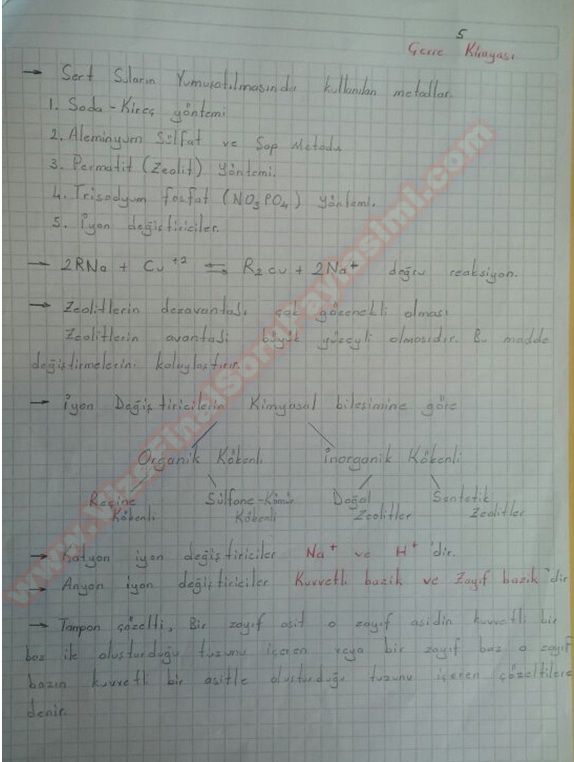 5
Çevre Kimyası
→ Sert Suların Yumuşatılmasında kullanılan metodlar.
1. Soda-Kireç yöntemi
2. Aleminyum Sülfat ve Şap Metodu
3. Permatit (Zeolit) yöntemi.
4. Trisodyum fosfat (NO3PO4) yöntemi.
5. İyon değiştiriciler.
→ 2RNa + Cu+2 ⇆ R2cu + 2Na+ doğru reaksiyon.
→ Zeolitlerin dezavantajı çok gözenekli olması
Zeolitlerin avantajı büyük yüzeyli olmasıdır. Bu madde
değiştirmelerini kolaylaştırır.
→ İyon Değiştiricilerin Kimyasal bileşimine göre
Organik Kökenli İnorganik Kökenli
Reçine Kökenli Sülfone-Kömür Kökenli Doğal Zeolitler Sentetik Zeolitler
→ Katyon iyon değiştiriciler Na+ ve H+'dir.
→ Anyon iyon değiştiriciler Kuvvetli bazik ve Zayıf bazik'dir
→ Tampon çözelti, Bir zayıf asit o zayıf asidin kuvvetli bir
baz ile oluşturduğu tuzunu içeren veya bir zayıf baz o zayıf
bazın kuvvetli bir asitle oluşturduğu tuzunu içeren çözeltilere
denir.
www.VizeFinalSoruPaylasimi.com